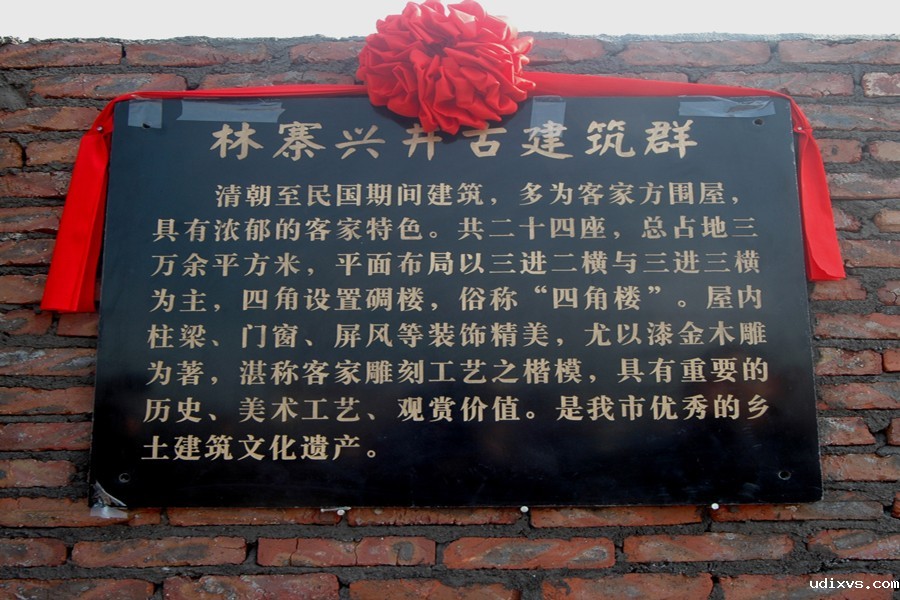 林寨兴井古建筑群
清朝至民国期间建筑，多为客家方围屋，
具有浓郁的客家特色。共二十四座，总占地三
万余平方米，平面布局以三进二横与三进三横
为主，四角设置碉楼，俗称“四角楼”。屋内
柱梁、门窗、屏风等装饰精美，尤以漆金木雕
为著，湛称客家雕刻工艺之楷模，具有重要的
历史、美术工艺、观赏价值。是我市优秀的乡
土建筑文化遗产。
udixvs.com